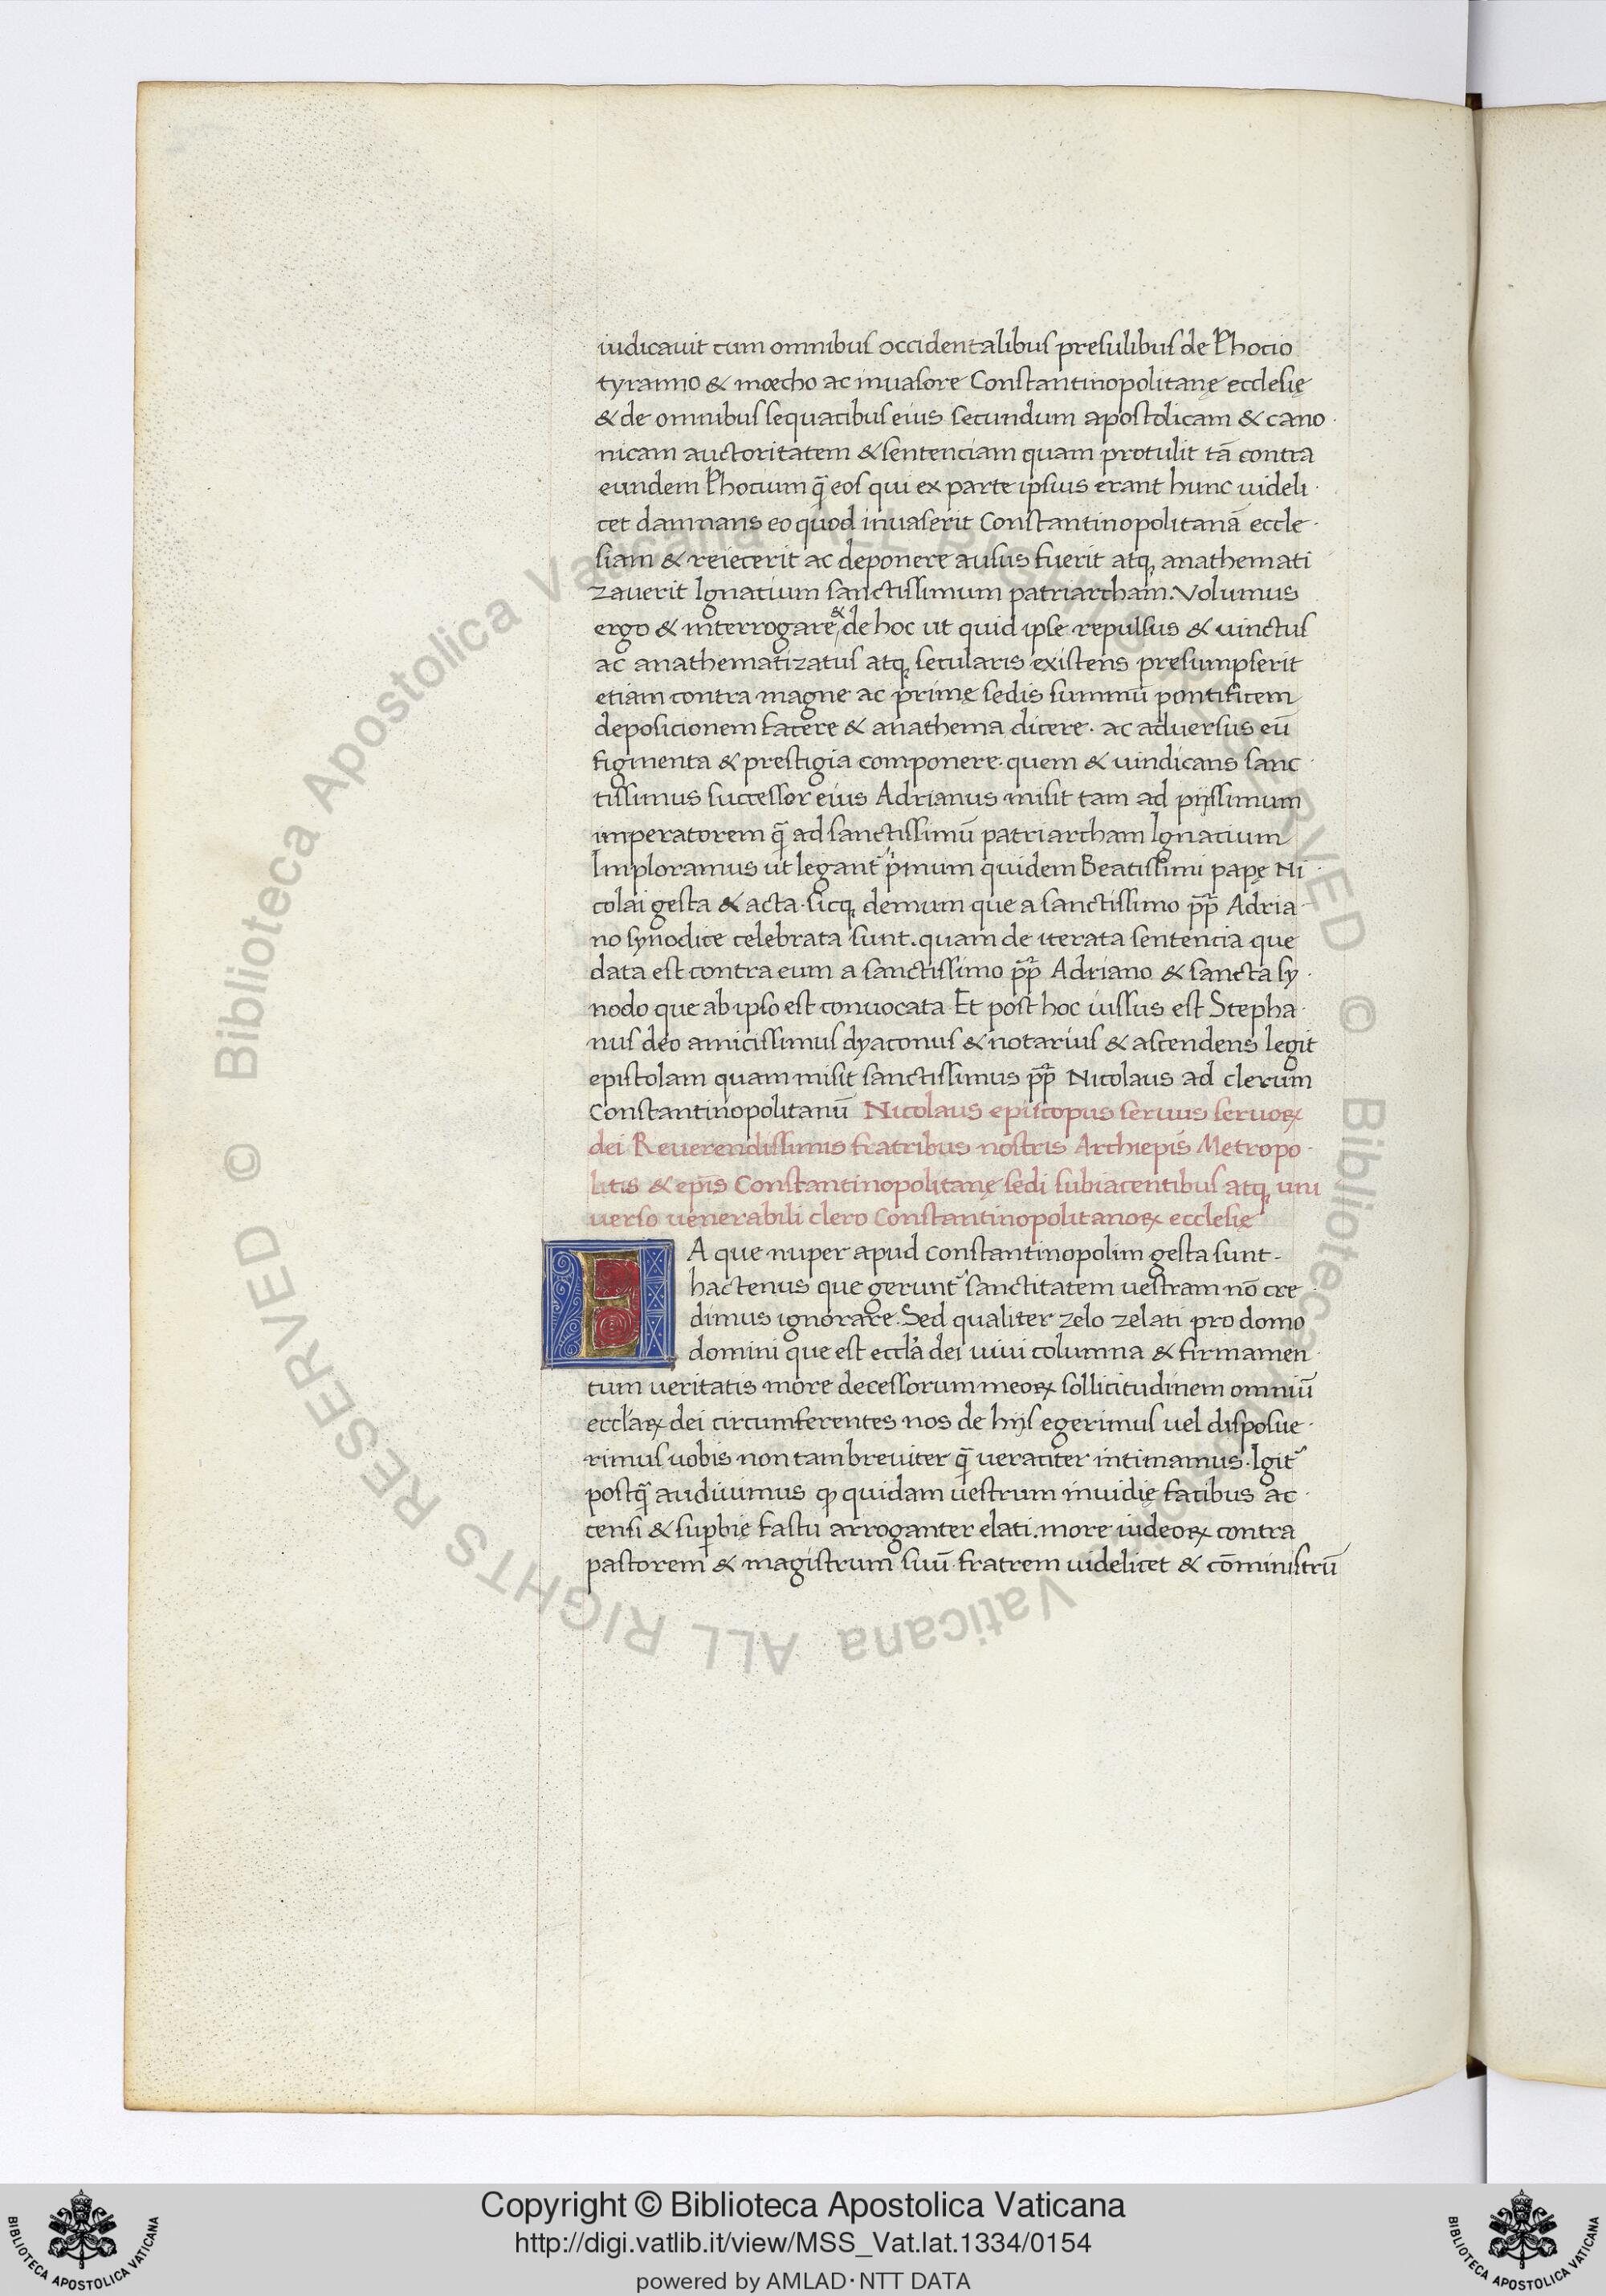 iudicauit cum omnibus occidentalibus presulibus de Photio
tyranno & mœcho ac inuasore Constantinopolitanę ecclesię
& de omnibus sequacibus eius secundum apostolicam & cano·
nicam auctoritatem & sentenciam quam protulit tā contra
eundem Photium q̄ eos qui ex parte ipsius erant hunc uideli·
cet damnans eo quod inuaserit Constantinopolitanā eccle·
siam & reiecerit ac deponere ausus fuerit atq, anathemati
zauerit Ignatium sanctissimum patriarcham. Volumus
ergo & interrogare & de hoc ut quid ipse repulsus & uinctus
ac anathematizatus atq, secularis existens presumpserit
etiam contra magne ac primę sedis summū pontificem
deposicionem facere & anathema dicere· ac aduersus eū
figmenta & prestigia componere· quem & uindicans sanc·
tissimus successor eius Adrianus misit tam ad pijssimum
imperatorem q̄ ad sanctissimū patriarcham Ignatium
Imploramus ut legant᷑ pͥmum quidem Beatissimi papę Ni·
colai gesta & acta· sicq, demum que a sanctissimo p̄p̄ Adria·
no synodice celebrata sunt. quam de iterata sentencia que
data est contra eum a sanctissimo p̄p̄ Adriano & sancta sy·
nodo que ab ipso est conuocata· Et post hoc iussus est Stepha·
nus deo amicissimus dyaconus & notarius & ascendens legit
epistolam quam misit sanctissimus p̄p̄ Nicolaus ad clerum
Constantinopolitanū Nicolaus episcopus seruus seruoꝝ
dei Reuerendissimis fratribus nostris Archiepīs Metropo·
litis & epīs Constantinopolitanę sedi subiacentibus atq, uni
uerso uenerabili clero Constantinopolitanoꝝ ecclesię
EA que nuper apud Constantinopolim gesta sunt·
hactenus que gerunt᷑ sanctitatem uestram nō cre·
dimus ignorare. Sed qualiter zelo zelati pro domo
domini que est eccl'a dei uiui columna & firmamen·
tum ueritatis more decessorum meoꝝ sollicitudinem omniū
eccl'aꝝ dei circumferentes nos de hijs egerimus uel disposue·
rimus uobis non tam breuiter q̄ ueraciter intimamus. Igit᷑
postq̄ audiuimus ꝙ quidam uestrum inuidię facibus ac·
censi & suꝑbię fastu arroganter elati. more iudeoꝝ contra
pastorem & magistrum suū· fratrem uidelicet & cōministrū
© Biblioteca Apostolica Vaticana ALL RIGHTS RESERVED © Biblioteca Apostolica Vaticana ALL RIGHTS RESERVED
Copyright © Biblioteca Apostolica Vaticana
http://digi.vatlib.it/view/MSS_Vat.lat.1334/0154
powered by AMLAD·NTT DATA
BIBLIOTECA APOSTOLICA VATICANA
BIBLIOTECA APOSTOLICA VATICANA